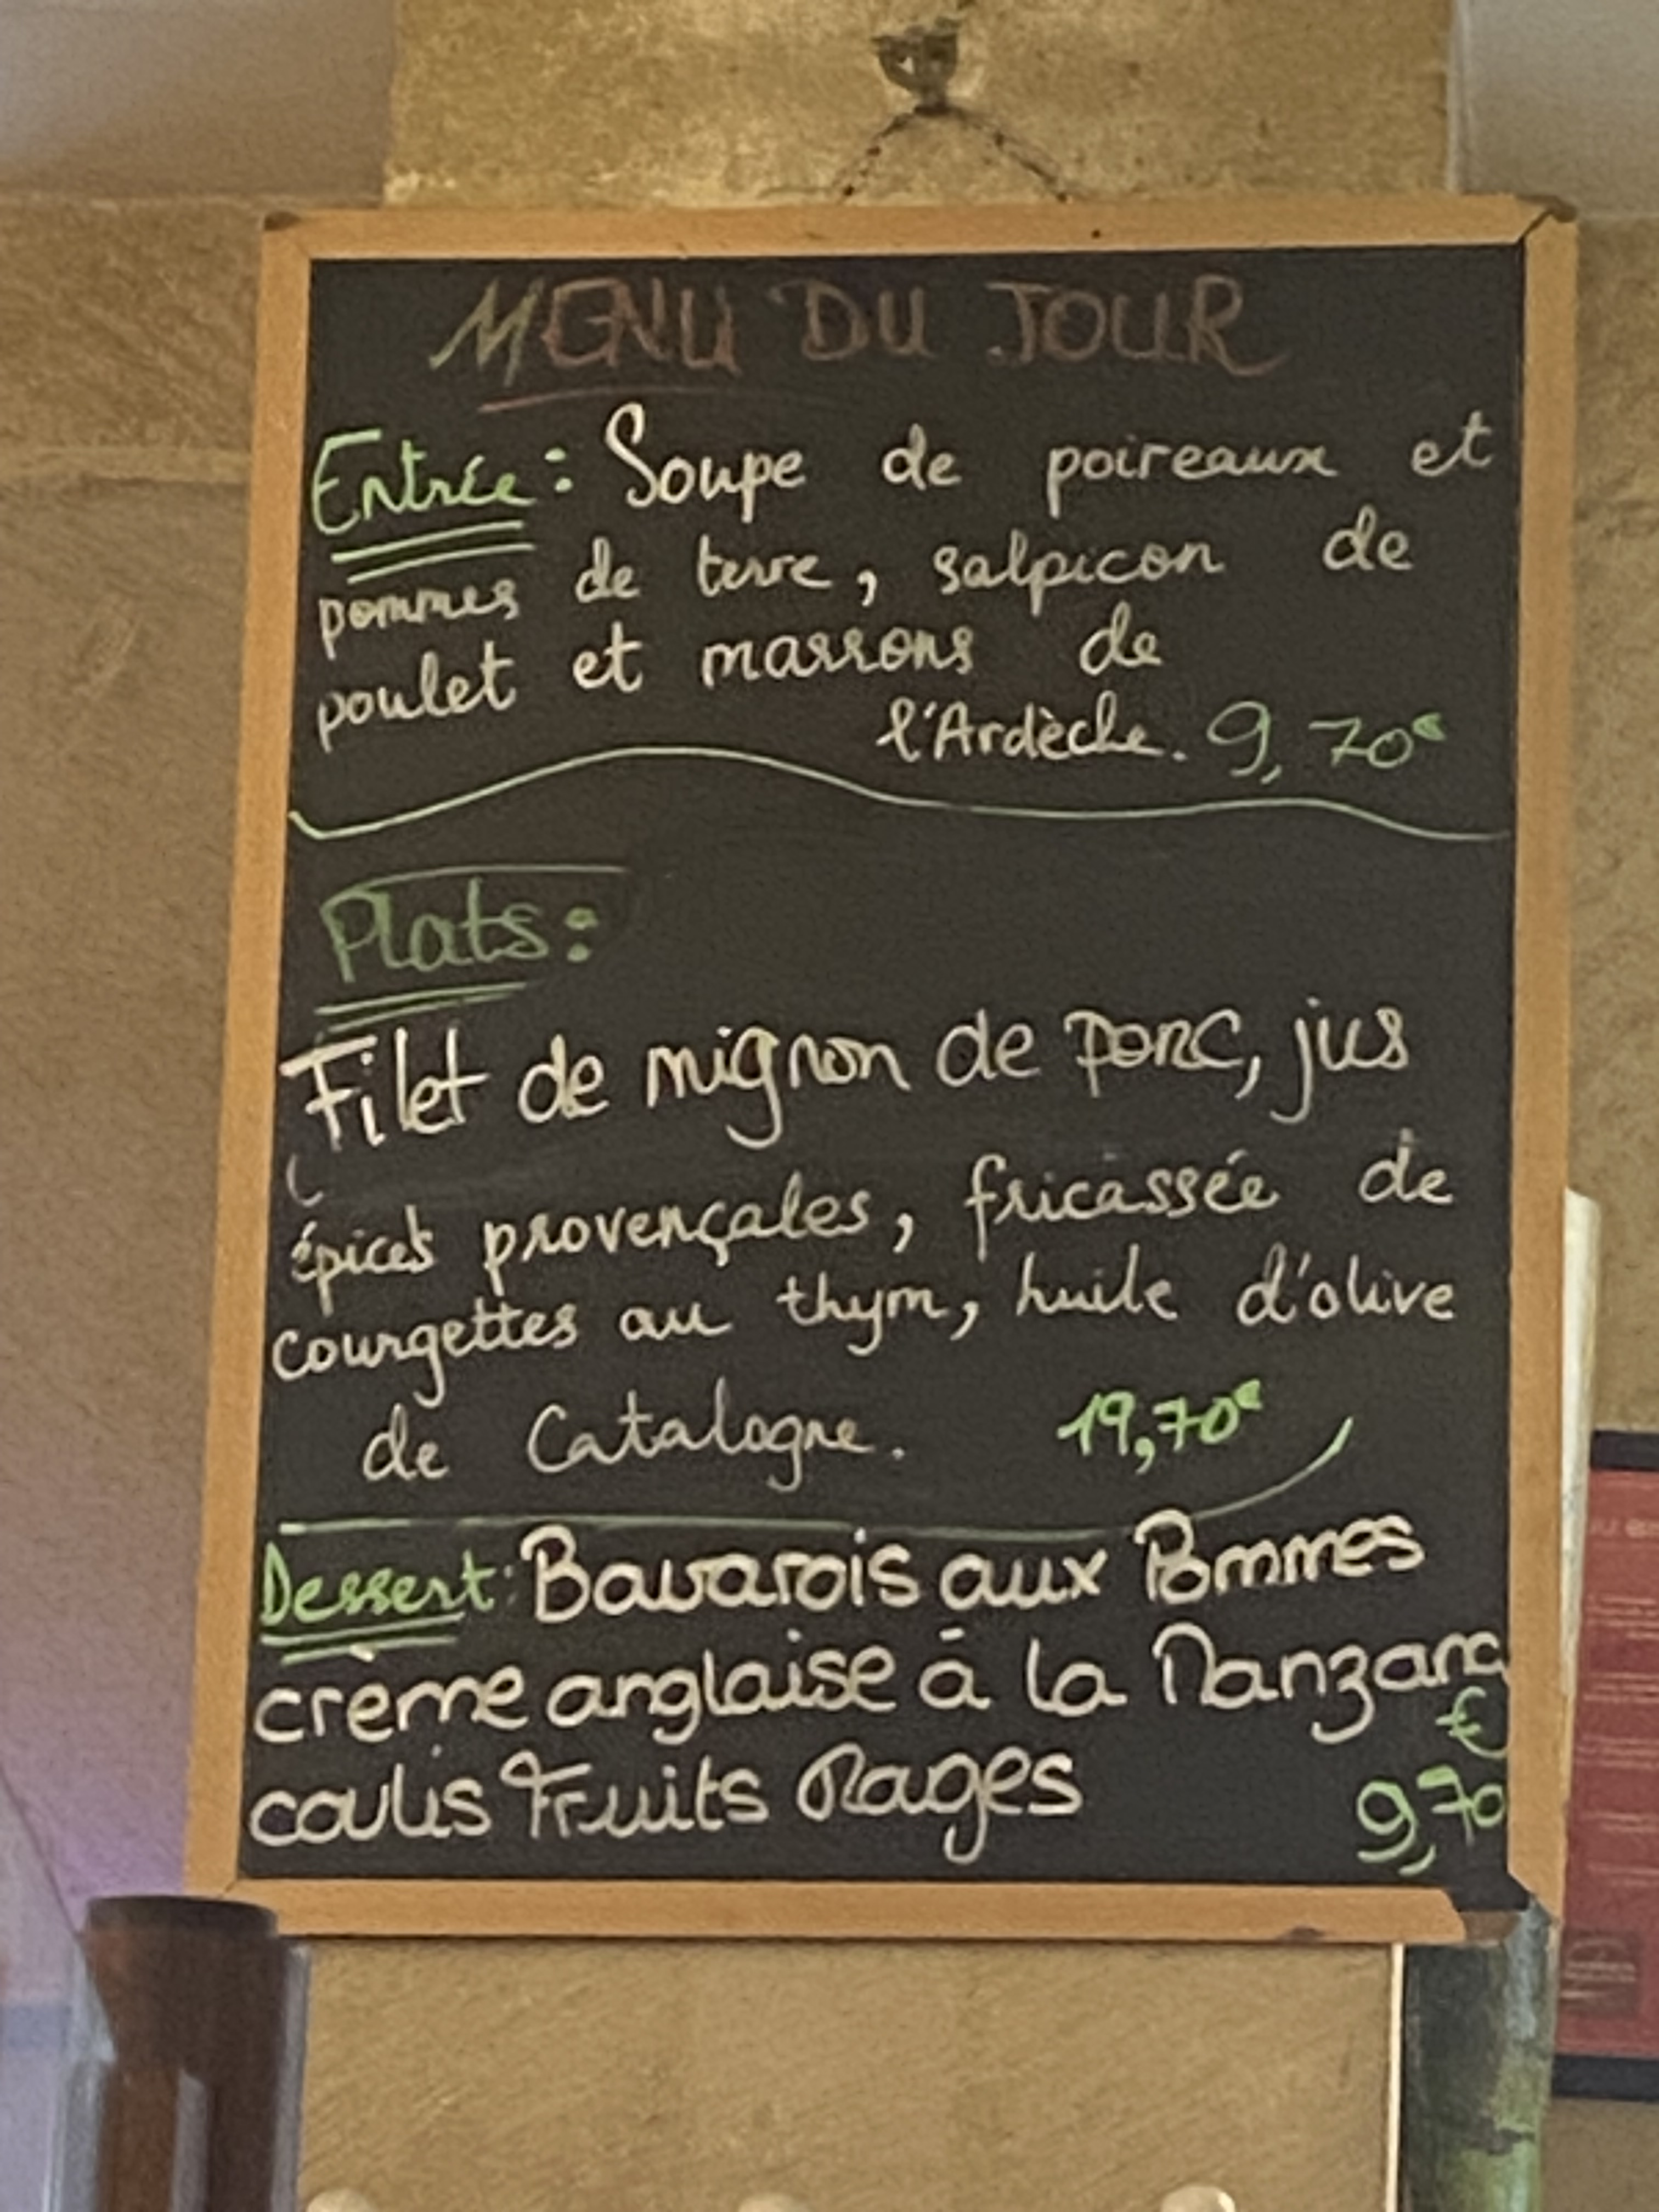 MENU DU JOUR
Entrée : Soupe de poireaux et
pommes de terre, salpicon de
poulet et marrons de
l'Ardèche. 9,70€
Plats :
Filet de mignon de porc, jus
épices provençales, fricassée de
courgettes au thym, huile d'olive
de Catalogne. 19,70€
Dessert : Bavarois aux Pommes
crème anglaise à la Manzana
coulis Fruits Rouges
€
9,70